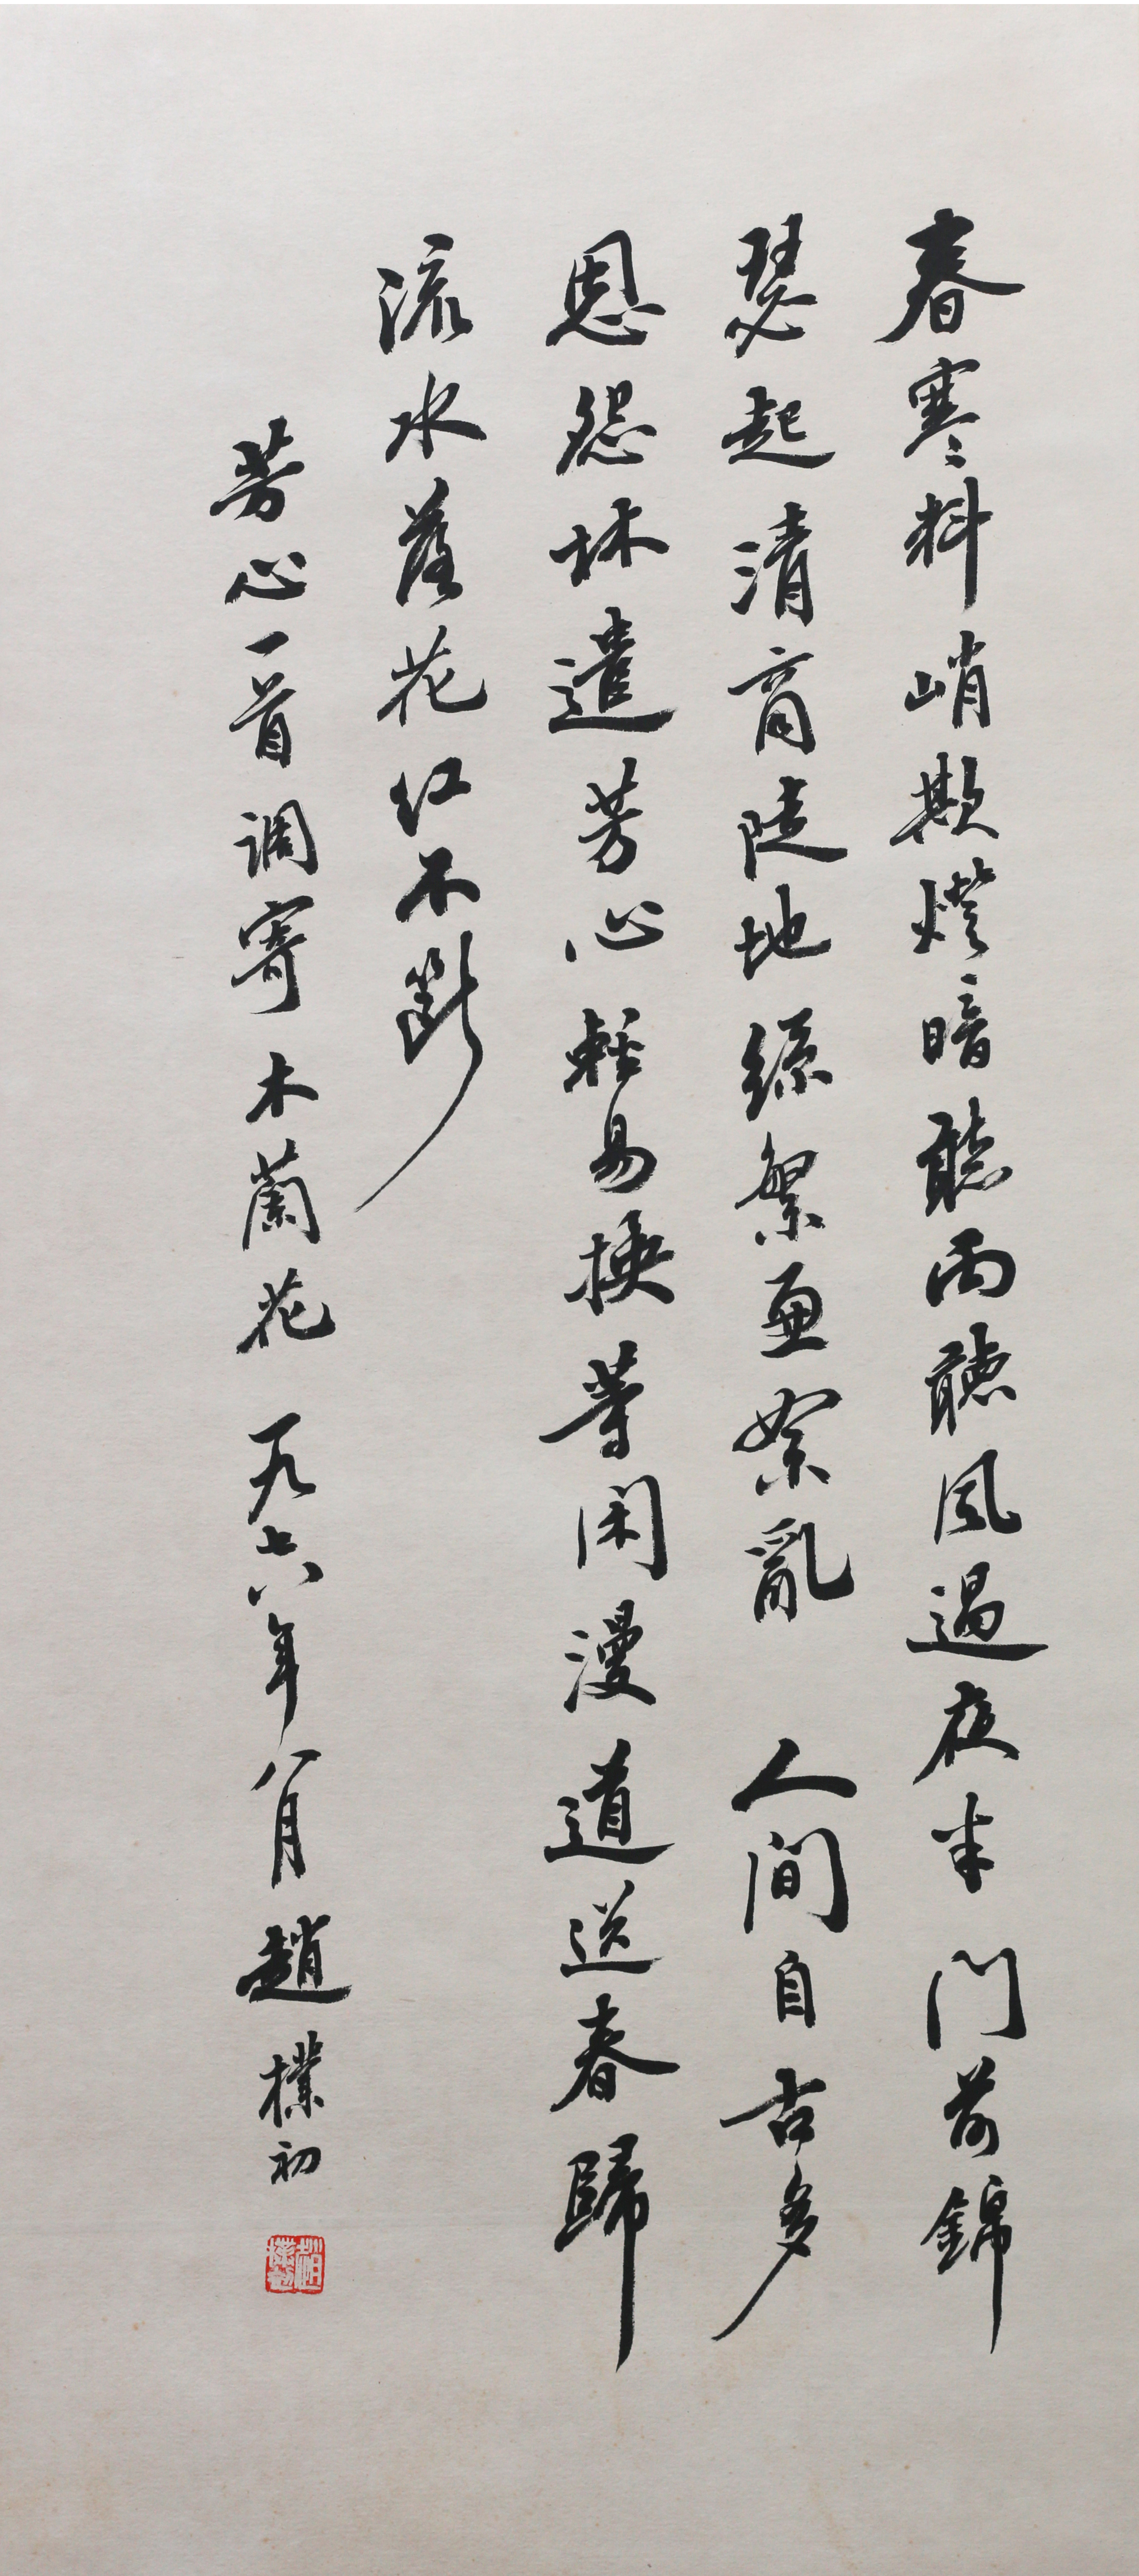 春寒料峭欺燈暗聽雨聽風過夜半門前錦
瑟起清商陡地絲繁兼絮亂 人間自古多
恩怨休遣芳心輕易換等闲漫道送春歸
流水落花红不斷
芳心一首调寄木蘭花 一九七六年八月 趙樸初
趙樸初